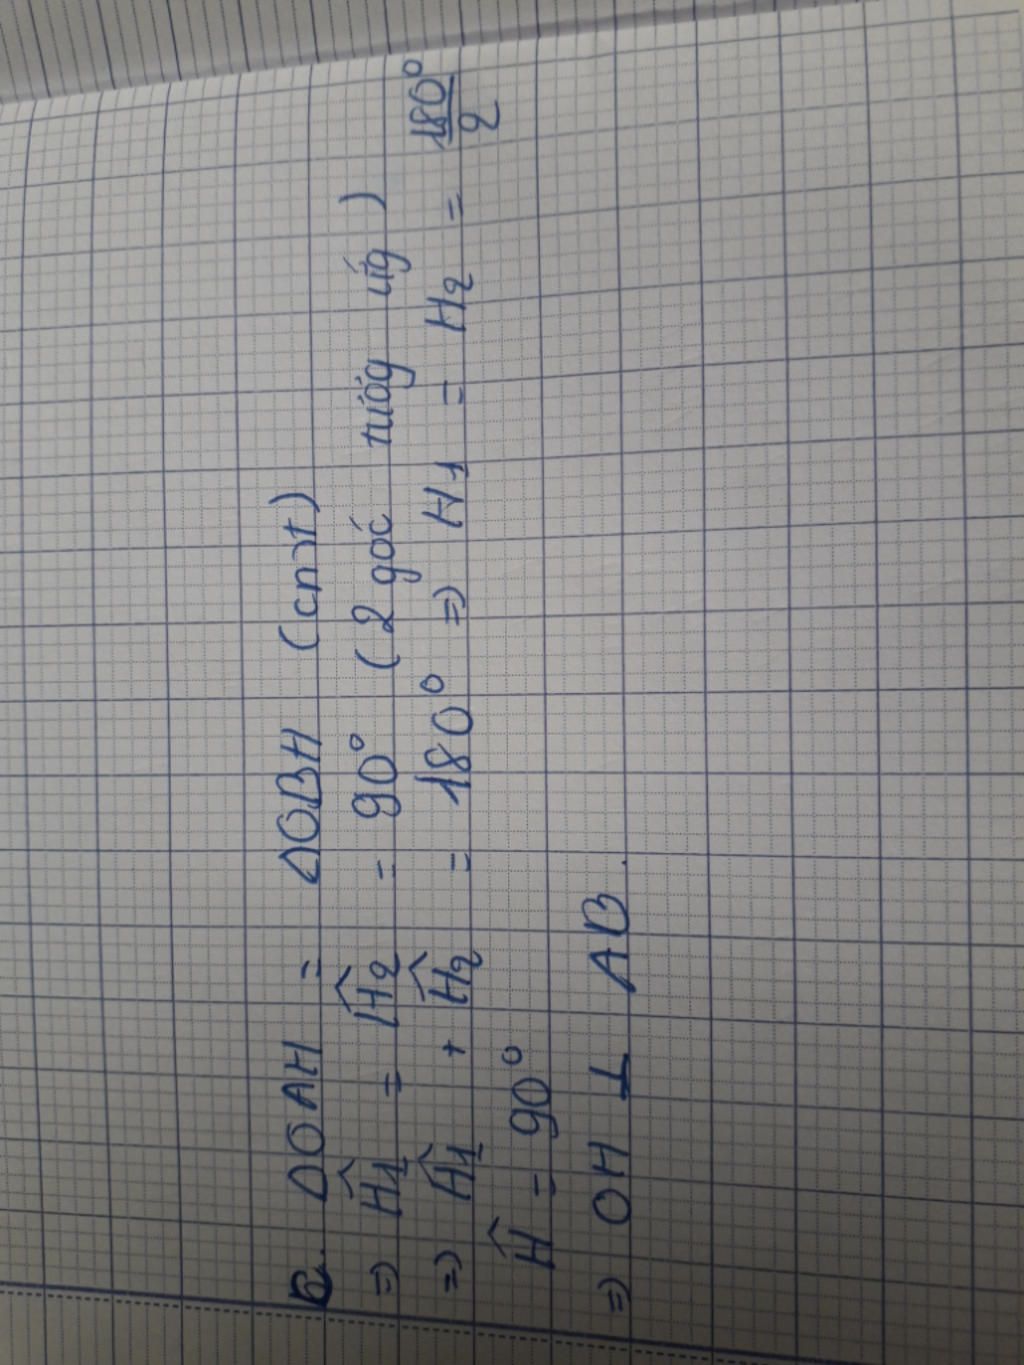 b. ΔOAH = ΔOBH (cmt)
⇒ Ĥ1 = Ĥ2 = 90° (2 góc tương ứng)
⇒ Ĥ1 + Ĥ2 = 180° ⇒ H1 = H2 = 180°/2
Ĥ = 90°
⇒ OH ⊥ AB.